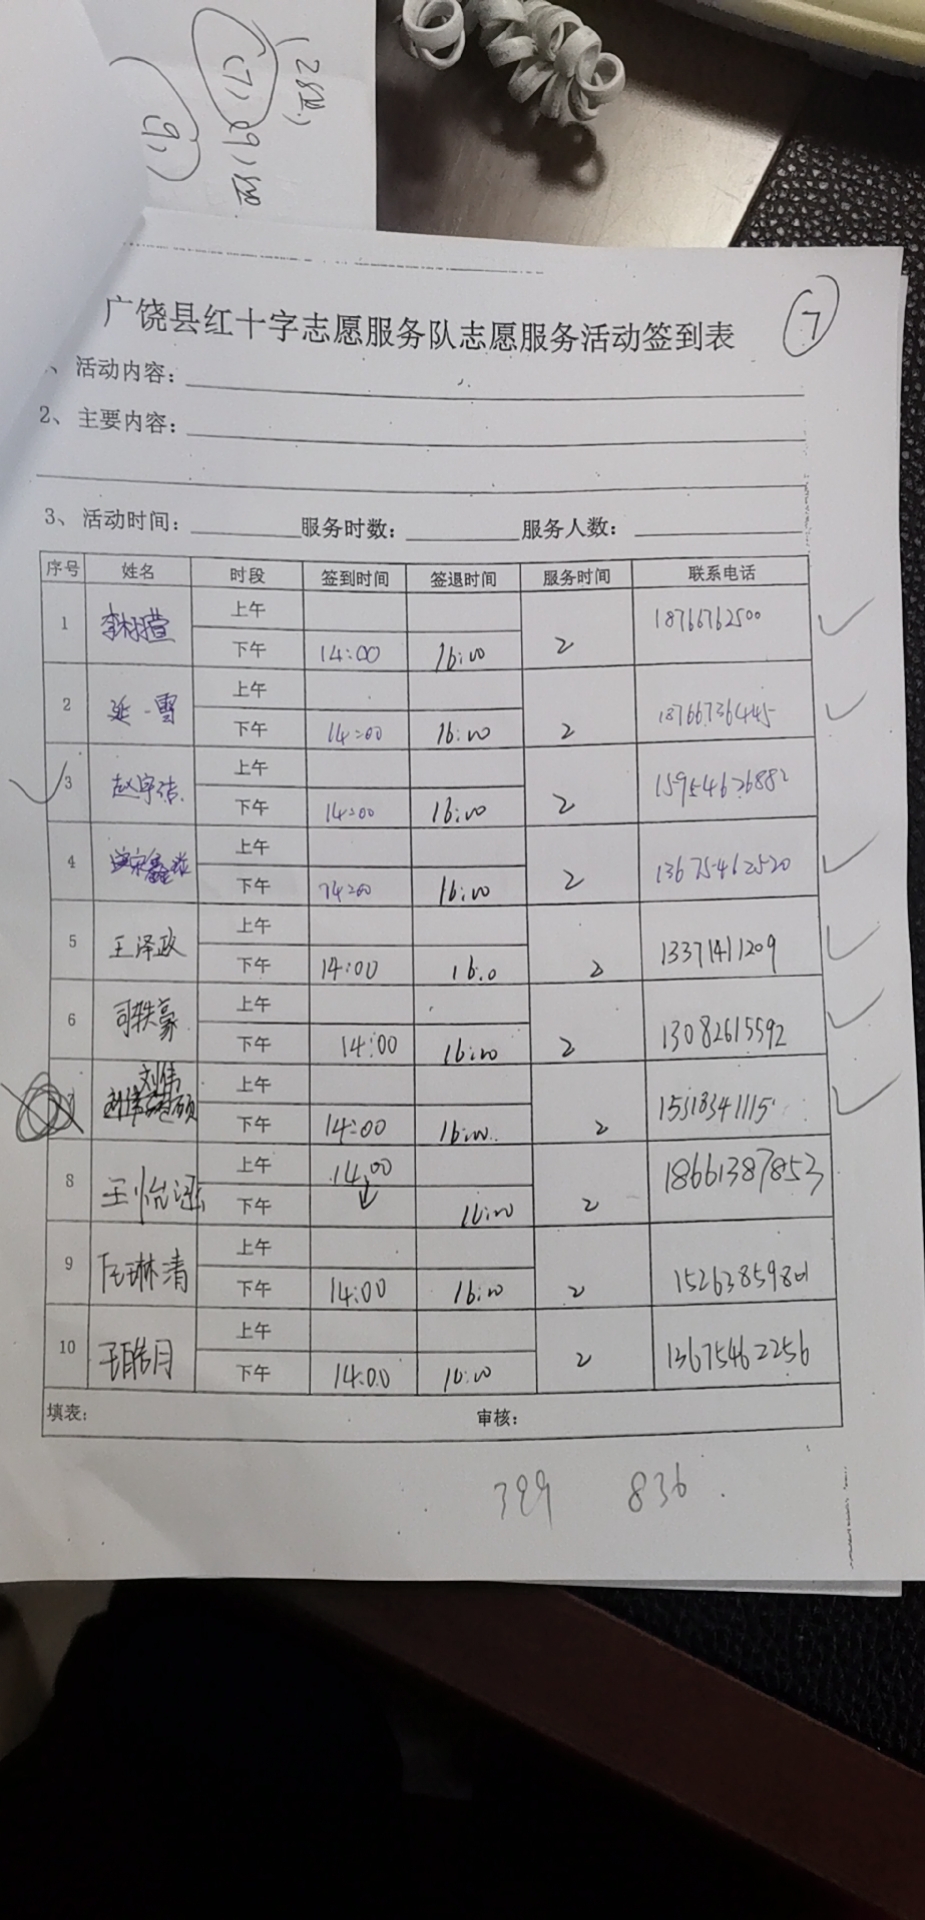 (28组)
(7) (9)组
(9)
广饶县红十字志愿服务队志愿服务活动签到表
7
、活动内容:
2、主要内容:
3、活动时间: 服务时数: 服务人数:
序号 姓名 时段 签到时间 签退时间 服务时间 联系电话
1 上午 18766762500
下午 14:00 16:00 2
2 延雪 上午 18766736445
下午 14:00 16:00 2
3 赵宇洁 上午 15954626882
下午 14:00 16:00 2
4 上午 13675462520
下午 14:00 16:00 2
5 王泽政 上午 13371411209
下午 14:00 16:0 2
6 司轶豪 上午 13082615592
下午 14:00 16:00 2
7 刘伟 上午 15518341115
下午 14:00 16:00 2
8 王怡涵 上午 14:00 18661387853
下午 16:00 2
9 任琳清 上午 15263859801
下午 14:00 16:00 2
10 王皓月 上午 13675462256
下午 14:00 16:00 2
填表: 审核:
399 836